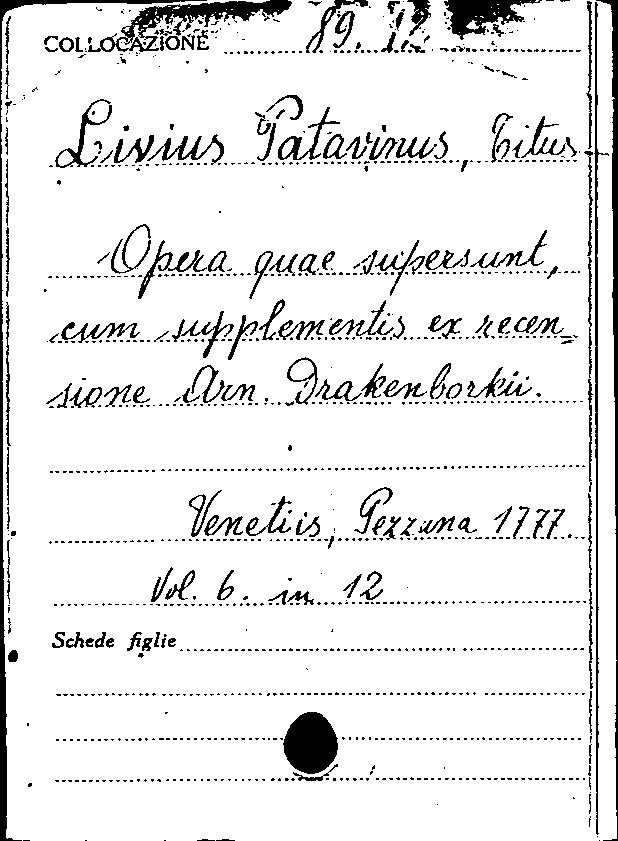 COLLOCAZIONE 89. 12
Livius Patavinus, Titus
Opera quae supersunt,
cum supplementis ex recen=
sione Arn. Drakenborkii.
Venetiis, Pezzana 1777.
Vol. 6. in 12
Schede figlie